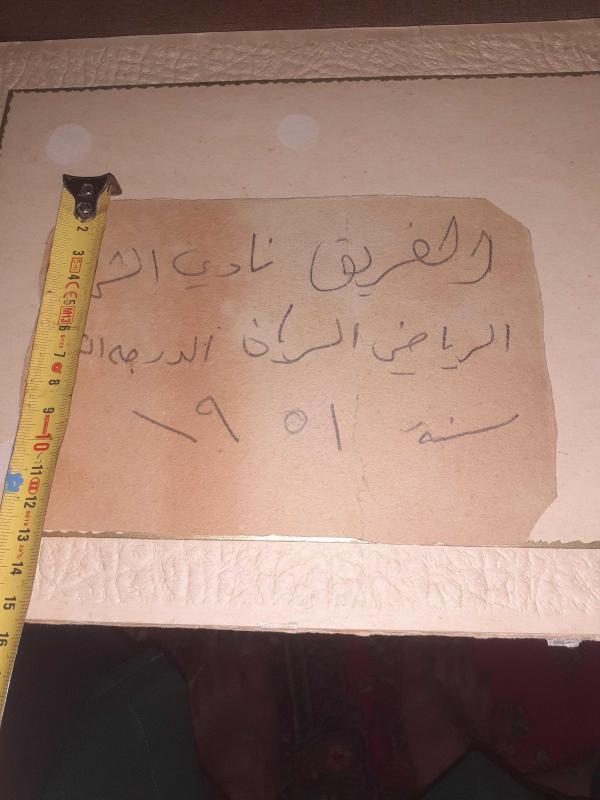 الفريق نادي
الرياضي الدرجه
سنة ١٩٥١
2 3 4 5 6 7 8 9 10 11 12 13 14 15 16
5m CE M13